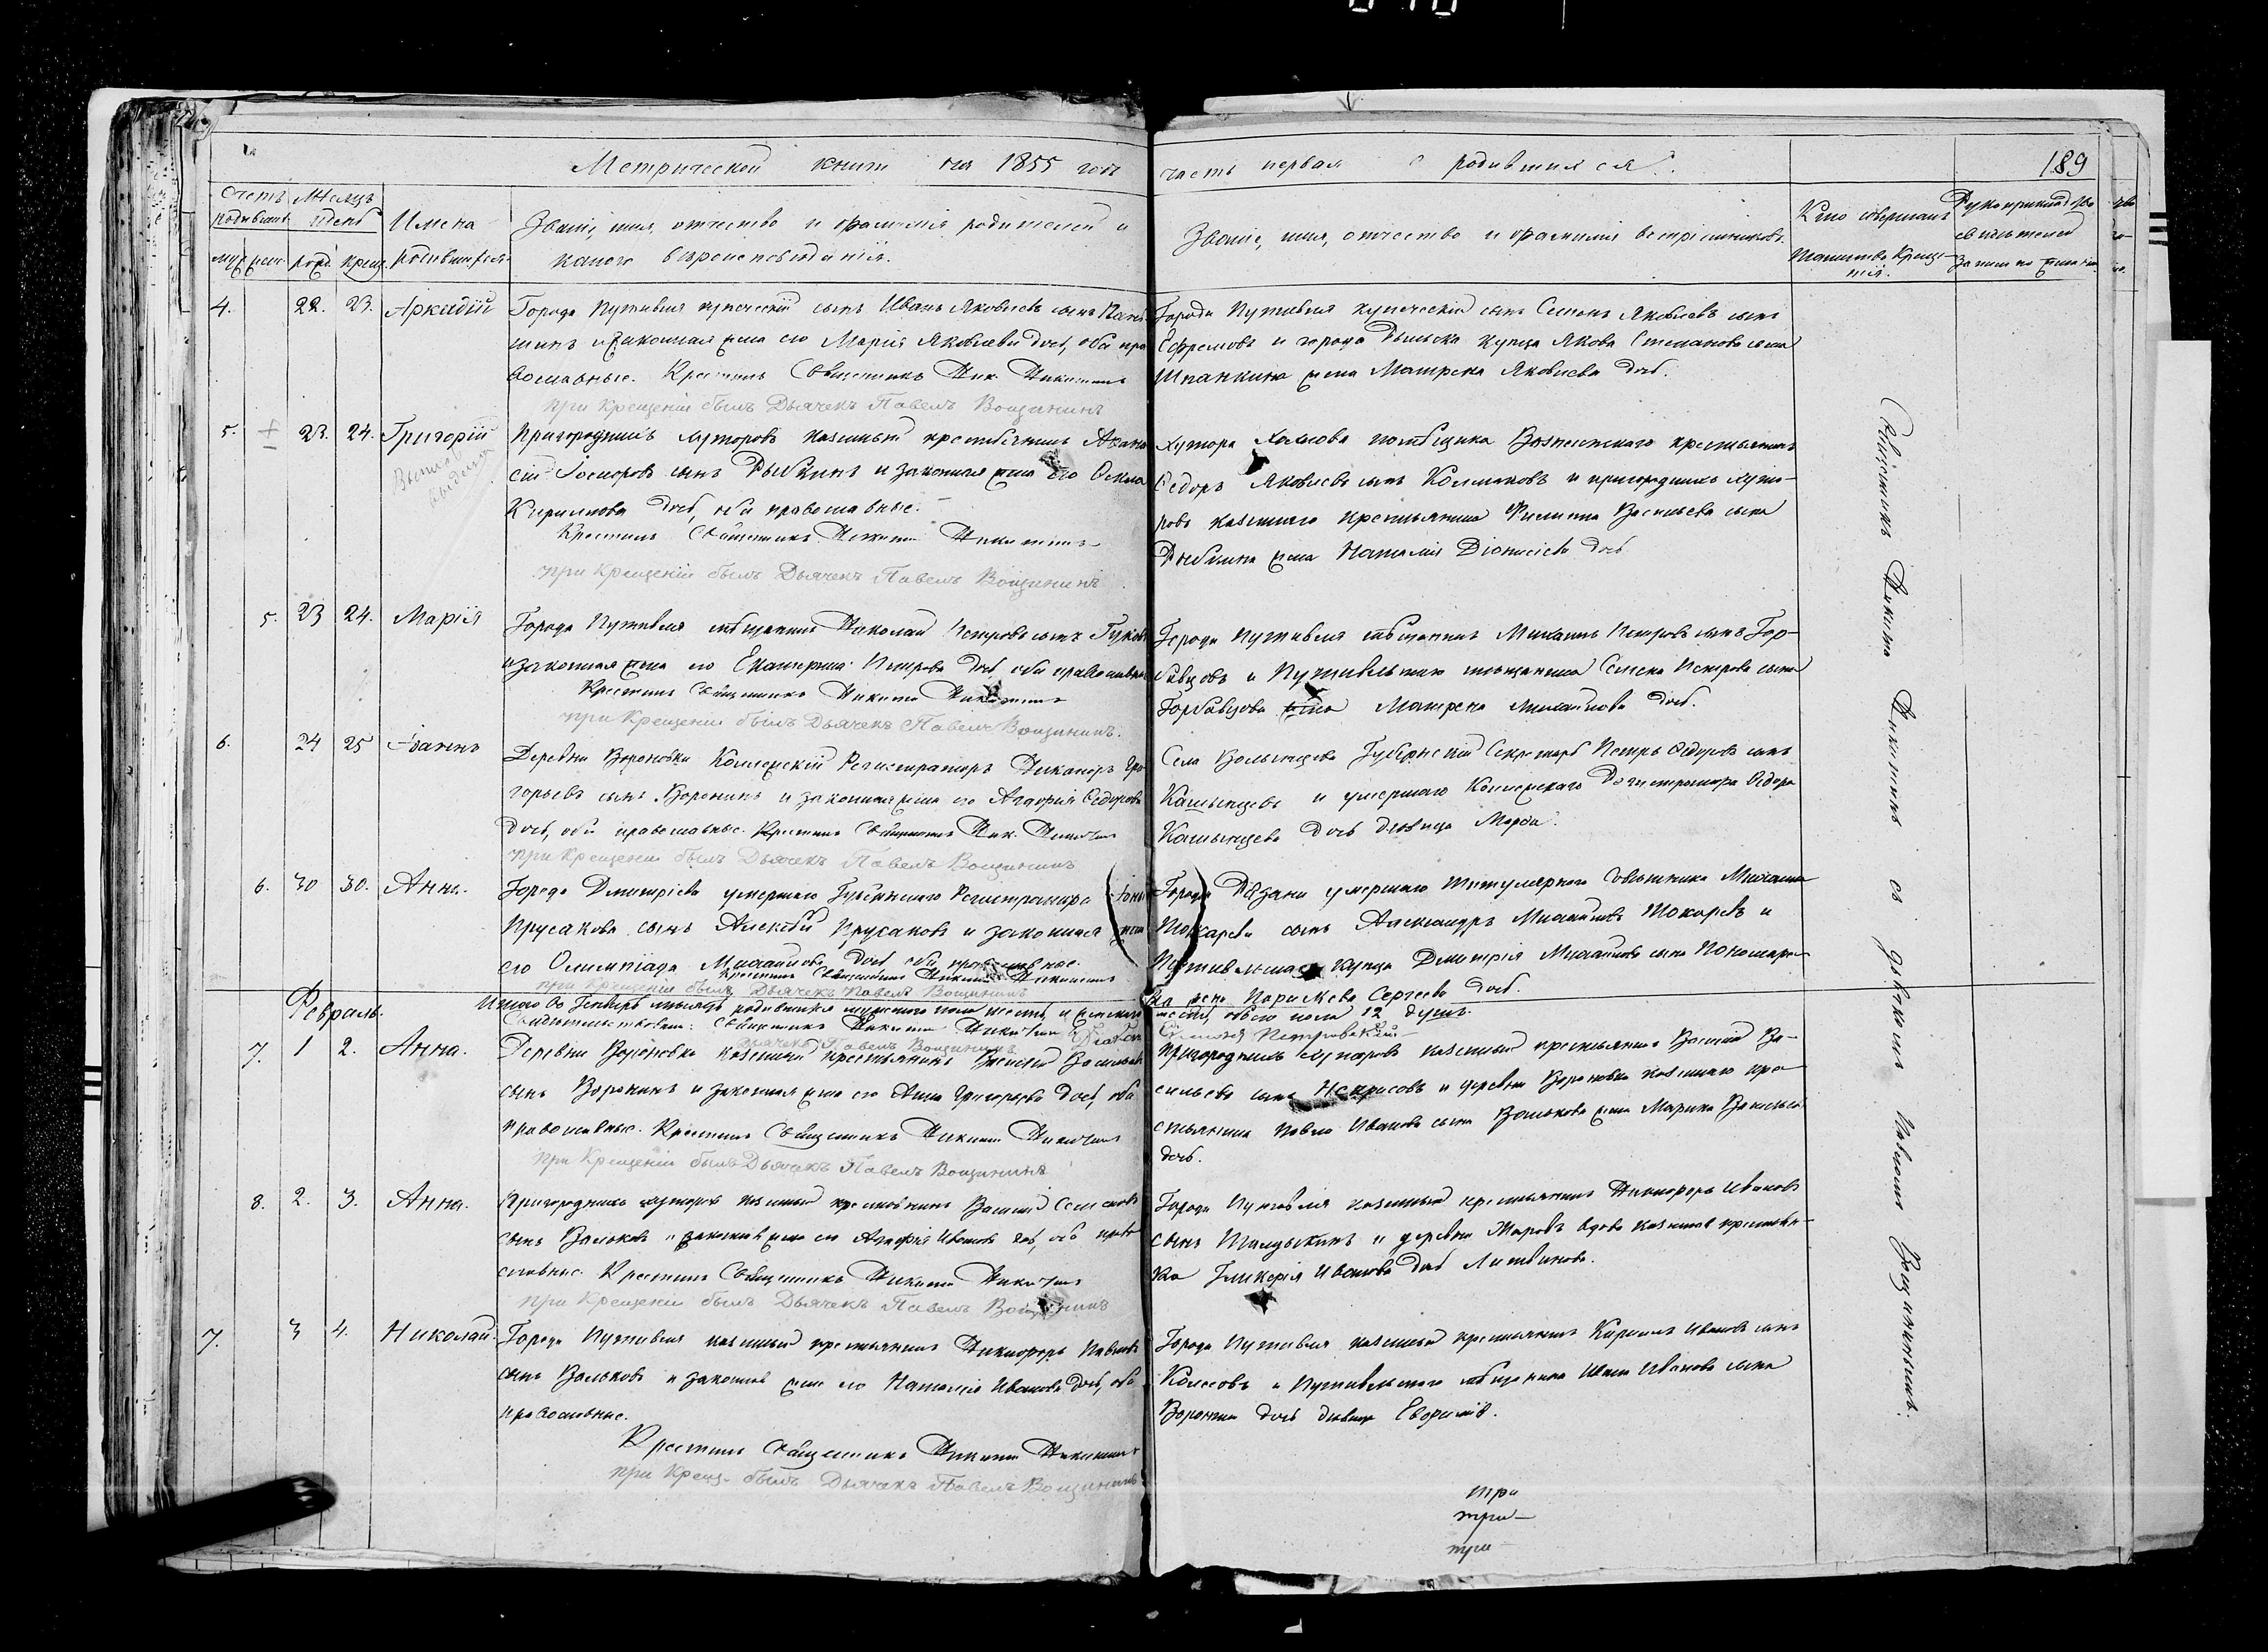 Метрической книги на 1855 годъ часть первая о родившихся.
189
Счетъ родивших. муж. жен.
Месяцъ и день рожд. крещ.
Имена родившихся.
Званіе, имя, отчество и фамилія родителей и
какого вѣроисповѣданія.
Званіе, имя, отчество и фамилія воспріемниковъ.
Кто совершалъ
таинство Креще-
нія.
Рукоприкладство
свидѣтелей
записи по желанію
4. 22. 23. Аркадій
Города Путивля купеческій сынъ Иванъ Яковлевъ сынъ
и законная жена его Марія Яковлева дочь, оба пра
вославные. Крестилъ Священникъ Ник. Никитинъ
при Крещеніи былъ Дьячекъ Павелъ Вощининъ
Города Путивля купеческій сынъ Семенъ Яковлевъ сынъ
Ефремовъ и города Рыльска купца Якова Степанова сына
Шпанкина жена Матрена Яковлева дочь.
5. 23. 24. Григорій
Пригородныхъ хуторовъ казенный крестьянинъ Афана
сій сынъ Рыбкинъ и законная жена его Фекла
Кирилова дочь, оба православные.
Крестилъ Священникъ Никита Никитинъ
при Крещеніи былъ Дьячекъ Павелъ Вощининъ
хутора помѣщика Вознесенскаго крестьянинъ
Федоръ Яковлевъ сынъ Колмаковъ и пригородныхъ хуто-
ровъ казеннаго крестьянина Филиппа Васильева сына
Рыбкина жена Наталія Діонисіева дочь
5. 23 24. Марія
Города Путивля мѣщанинъ Николай Петровъ сынъ
и законная жена его Екатерина Петрова дочь, оба православные
Крестилъ Священникъ Никита Никитинъ
при Крещеніи былъ Дьячекъ Павелъ Вощининъ.
Города Путивля мѣщанинъ Михаилъ Петровъ сынъ Гор-
бавцовъ и Путивльскаго мѣщанина Семена Петрова сына
Горбавцова жена Матрена Михайлова дочь.
6. 24 25 Іоаннъ
Деревни Вороновки Коллежскій Регистраторъ Никаноръ Гри
горьевъ сынъ Воронинъ и законная жена его Агафія Федорова
дочь, оба православные. Крестилъ Священникъ Ник. Никитинъ
при Крещеніи былъ Дьячекъ Павелъ Вощининъ
Села Волынцева Губернскій Секретарь Петръ Федоровъ сынъ
и умершаго Коллежскаго Регистратора Федора
дочь девица Марфа.
6. 30 30. Анна.
Города Дмитріева умершаго Губернскаго Регистратора
Прусакова сынъ Алексѣй Прусаковъ и законная жена
его Олимпіада Михайлова дочь оба православные.
Крестилъ Священникъ Никита Никитинъ
при Крещеніи былъ Дьячекъ Павелъ Вощининъ
Города Рязани умершаго Титулярнаго Совѣтника Михаила
Токарева сынъ Александръ Михайловъ Токаревъ и
Путивльскаго Купца Димитрія Михайлова сына Пономаре-
ва жена Параскева Сергеева дочь.
Итого въ Генварѣ месяцѣ родившихся мужеска пола шесть, и женскаго шесть, обоего пола 12 душъ.
Свидѣтельствовали: Священникъ Никита Никитинъ Діаконъ Петровскій
Дьячекъ Павелъ Вощининъ
Февраль.
7. 1 2. Анна.
Деревни Вороновки казенный крестьянинъ Васильевъ
сынъ Воронинъ и законная жена его Анна Григорьева дочь, оба
православные. Крестилъ Священникъ Никита Никитинъ
при Крещеніи былъ Дьячекъ Павелъ Вощининъ
пригородныхъ хуторовъ казенный крестьянинъ Василій Ва-
сильевъ сынъ Некрасовъ и деревни Вороновки казеннаго кре-
стьянина Павла Иванова сына Волькова жена Марина Васильева
дочь.
8. 2. 3. Анна.
Пригородныхъ хуторовъ казенный крестьянинъ Василій Семеновъ
сынъ Вольковъ и законная жена его Агафія Иванова дочь, оба право
славные. Крестилъ Священникъ Никита Никитинъ
при Крещеніи былъ Дьячекъ Павелъ Вощининъ
Города Путивля казенный крестьянинъ Никифоръ Ивановъ
сынъ Шалдыкинъ и деревни вдова казенная крестьян-
ка Гликерія Иванова дочь Литвинова.
7. 3 4. Николай.
Города Путивля казенный крестьянинъ Никифоръ Павловъ
сынъ Вольковъ и законная жена его Наталія Иванова дочь, оба
православные.
Крестилъ Священникъ Никита Никитинъ
при Крещ. былъ Дьячекъ Павелъ Вощининъ
Города Путивля казенный крестьянинъ Кирилъ Ивановъ сынъ
Колесовъ и Путивльскаго мѣщанина Ивана Иванова сына
Воронина дочь девица Евфимія.
Священникъ Никита Никитинъ съ дьячкомъ Павломъ Вощининымъ.
три
три
три